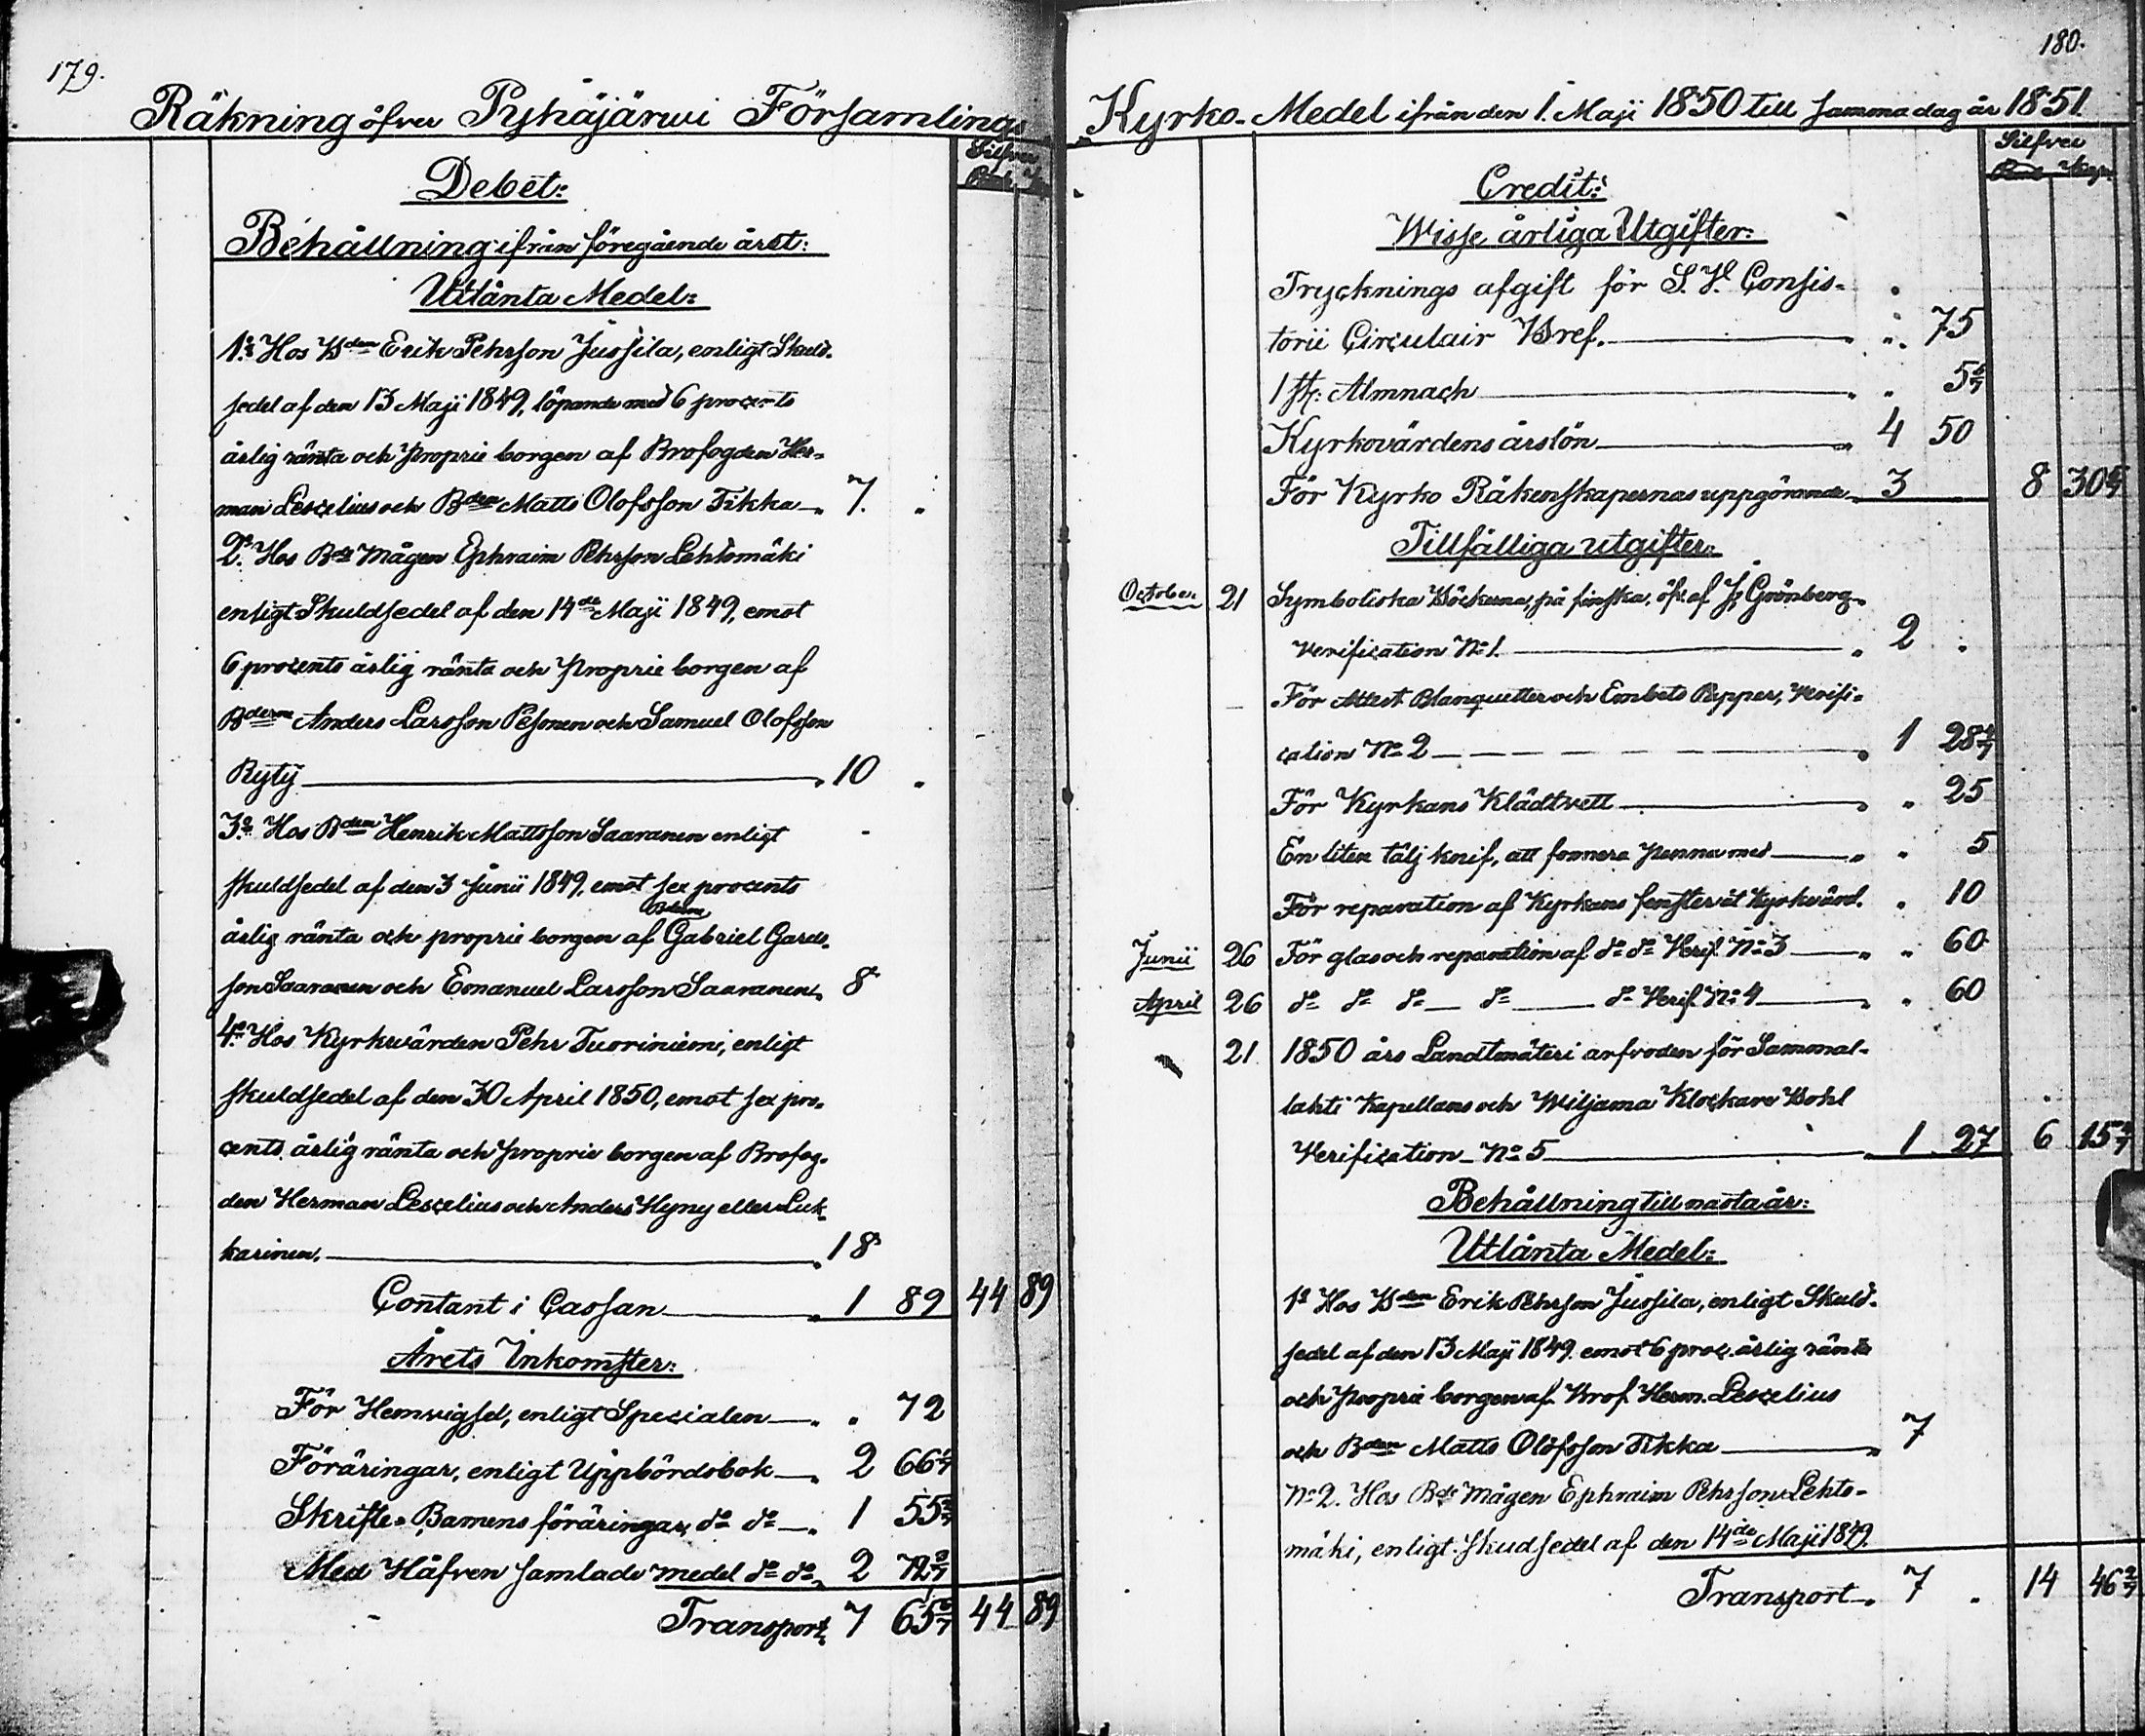 179.
Räkning öfver Pyhäjärwi Församlings
Silfver
Rub. Kop.
Debet:
Behållning ifrån föregående året:
Utlånta Medel:
1:o Hos Bden Erik Pehrsson Jussila, enligt Skuld-
sedel af den 13 Maji 1849, löpande med 6 procents
årlig ränta och proprie borgen af Brofogden Her-
man Lescelius och Bden Matts Olofsson Tikka 7. "
2:o Hos Bde Mågen Ephraim Pehrsson Lehtomäki
enligt Skuldsedel af den 14de Maji 1849, emot
6 procents årlig ränta och proprie borgen af
Bderne Anders Larsson Pesonen och Samuel Olofsson
Ryty " 10 "
3:o Hos Bden Henrik Mattsson Saaranen enligt
skuldsedel af den 3 Junii 1849, emot sex procents
årlig ränta och proprie borgen af Bderne Gabriel Gards-
son Saaranen och Emanuel Larsson Saaranen " 8
4:o Hos Kyrkvärden Pehr Tuoriniemi, enligt
skuldsedel af den 30 April 1850, emot sex pro-
cents årlig ränta och proprie borgen af Brofog-
den Herman Lescelius och Anders Hyny eller Luk-
karinen. " 18
Contant i Cassan " 1 89 44 89
Årets Inkomster:
För Hemvigsel, enligt Specialen " " 72
Föräringar, enligt Uppbördsbok " 2 66 4/7
Skrifte-Barnens föräringar, do do " 1 55 3/7
Med Håfven samlade medel do do " 2 72 2/7
Transport 7 65 6/7 44 89
180.
Kyrko-Medel ifrån den 1. Maji 1850 till samma dag år 1851.
Silfver
Rub. Kop.
Credit:
Wisse årliga Utgifter:
Trycknings afgift för S. V. Consis-
torii Circulair Bref. " " 75
1 st: Almnach " " 5 5/7
Kyrkovärdens årslön " 4 50
För Kyrko Räkenskapernas uppgörande 3 8 30 5/7
Tillfälliga utgifter:
October 21 Symboliska Böckerna, på finska, öfs. af J. Grönberg
Verification No 1. " 2 "
För Attest Blanquetter och Embets Papper, Verifi-
cation No 2 " 1 28 4/7
För Kyrkans Klädtvett " " 25
En liten tälj knif, att formera penna med " " 5
För reparation af Kyrkans fenster åt Kyrkvärd. " 10
Junii 26 För glas och reparation af do do Verif. No 3 " " 60
April 26 do do do do do Verif. No 4 " " 60
21. 1850 års Landtmäteri arfvoden för Sammal-
lahti Kapellans och Wiljama Klockare Bohl
Verification No 5 1 27 6 15 4/7
Behållning till nästa år:
Utlånta Medel:
1:o Hos Bden Erik Pehrsson Jussila, enligt Skuld-
sedel af den 13 Maji 1849. emot 6 proc. årlig ränta
och proprie borgen af Brof. Herm. Lescelius
och Bden Matts Olofsson Tikka " 7
No 2. Hos Bde Mågen Ephraim Pehrsson Lehto-
mäki, enligt Skudsedel af den 14de Maji 1849.
Transport " 7 " 14 46 2/7